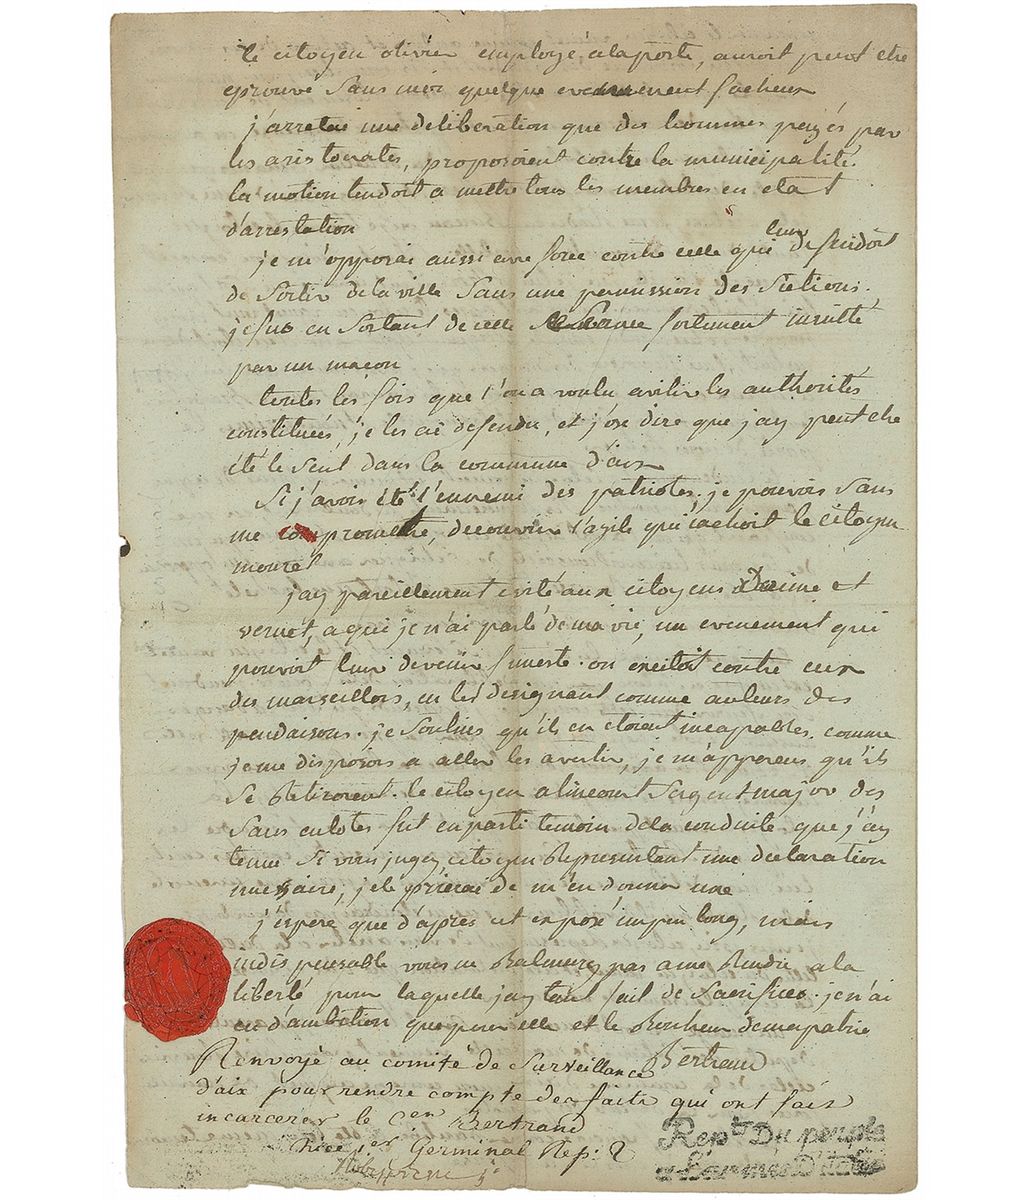 le citoyen olivier employé a la poste, auroit peut etre
eprouvé sans moi quelque evenement facheux
j'arretai une deliberation que des hommes payés par
les aristocrates, proposoient contre la municipalité.
la motion tendoit a mettre tous les membres en etat
d'arrestation
je m'opposai aussi avec force contre celle qui leur defendoit
de sortir de la ville sans une permission des sections.
je fus en sortant de cette séance fortement insulté
par un macon
toutes les fois que l'on a voulu avilir les authorités
constituées, je les ai defendu, et j'ose dire que j'ay peut etre
été le seul dans la commune d'aix
Si j'avois été l'ennemi des patriotes. je pouvois sans
me compromettre, decouvrir l'azile qui cachoit le citoyen
mouret
j'ay pareillement evité aux citoyens et
vernet, a qui je n'ai parlé de ma vie, un evenement qui
pouvoit leur devenir funeste. on excitoit contre eux
des marseillois, en les designant comme auteurs des
pendaisons. je soutins qu'ils en etoient incapables. comme
je me disposois a aller les avertir, je m'apperçus qu'ils
se Retiroient. le citoyen alincourt sergent major des
sans culotes fut en parti temoin de la conduite que j'ay
tenue si vous jugez citoyen Representant une declaration
necessaire, je le prierai de m'en donner une
j'espere que d'après cet exposé un peu long, mais
indispensable vous ne Balancerez pas a me Rendre a la
liberté pour laquelle j'ay tant fait de sacrifices. je n'ai
eu d'ambition que pour elle et le Bonheur de ma patrie
Bertrand
Renvoyé au comité de Surveillance
d'aix pour rendre compte des faits qui ont fait
incarcerer le Cen Bertrand
Nice 1er Germinal Rep: 2
Rep.t Du peuple
a L'armée D'italie